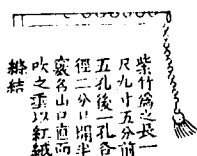 紫竹為之長一
尺九寸五分前
五孔後一孔各
徑二分以開半
竅名山口直而
吹之垂以紅絨
絛結